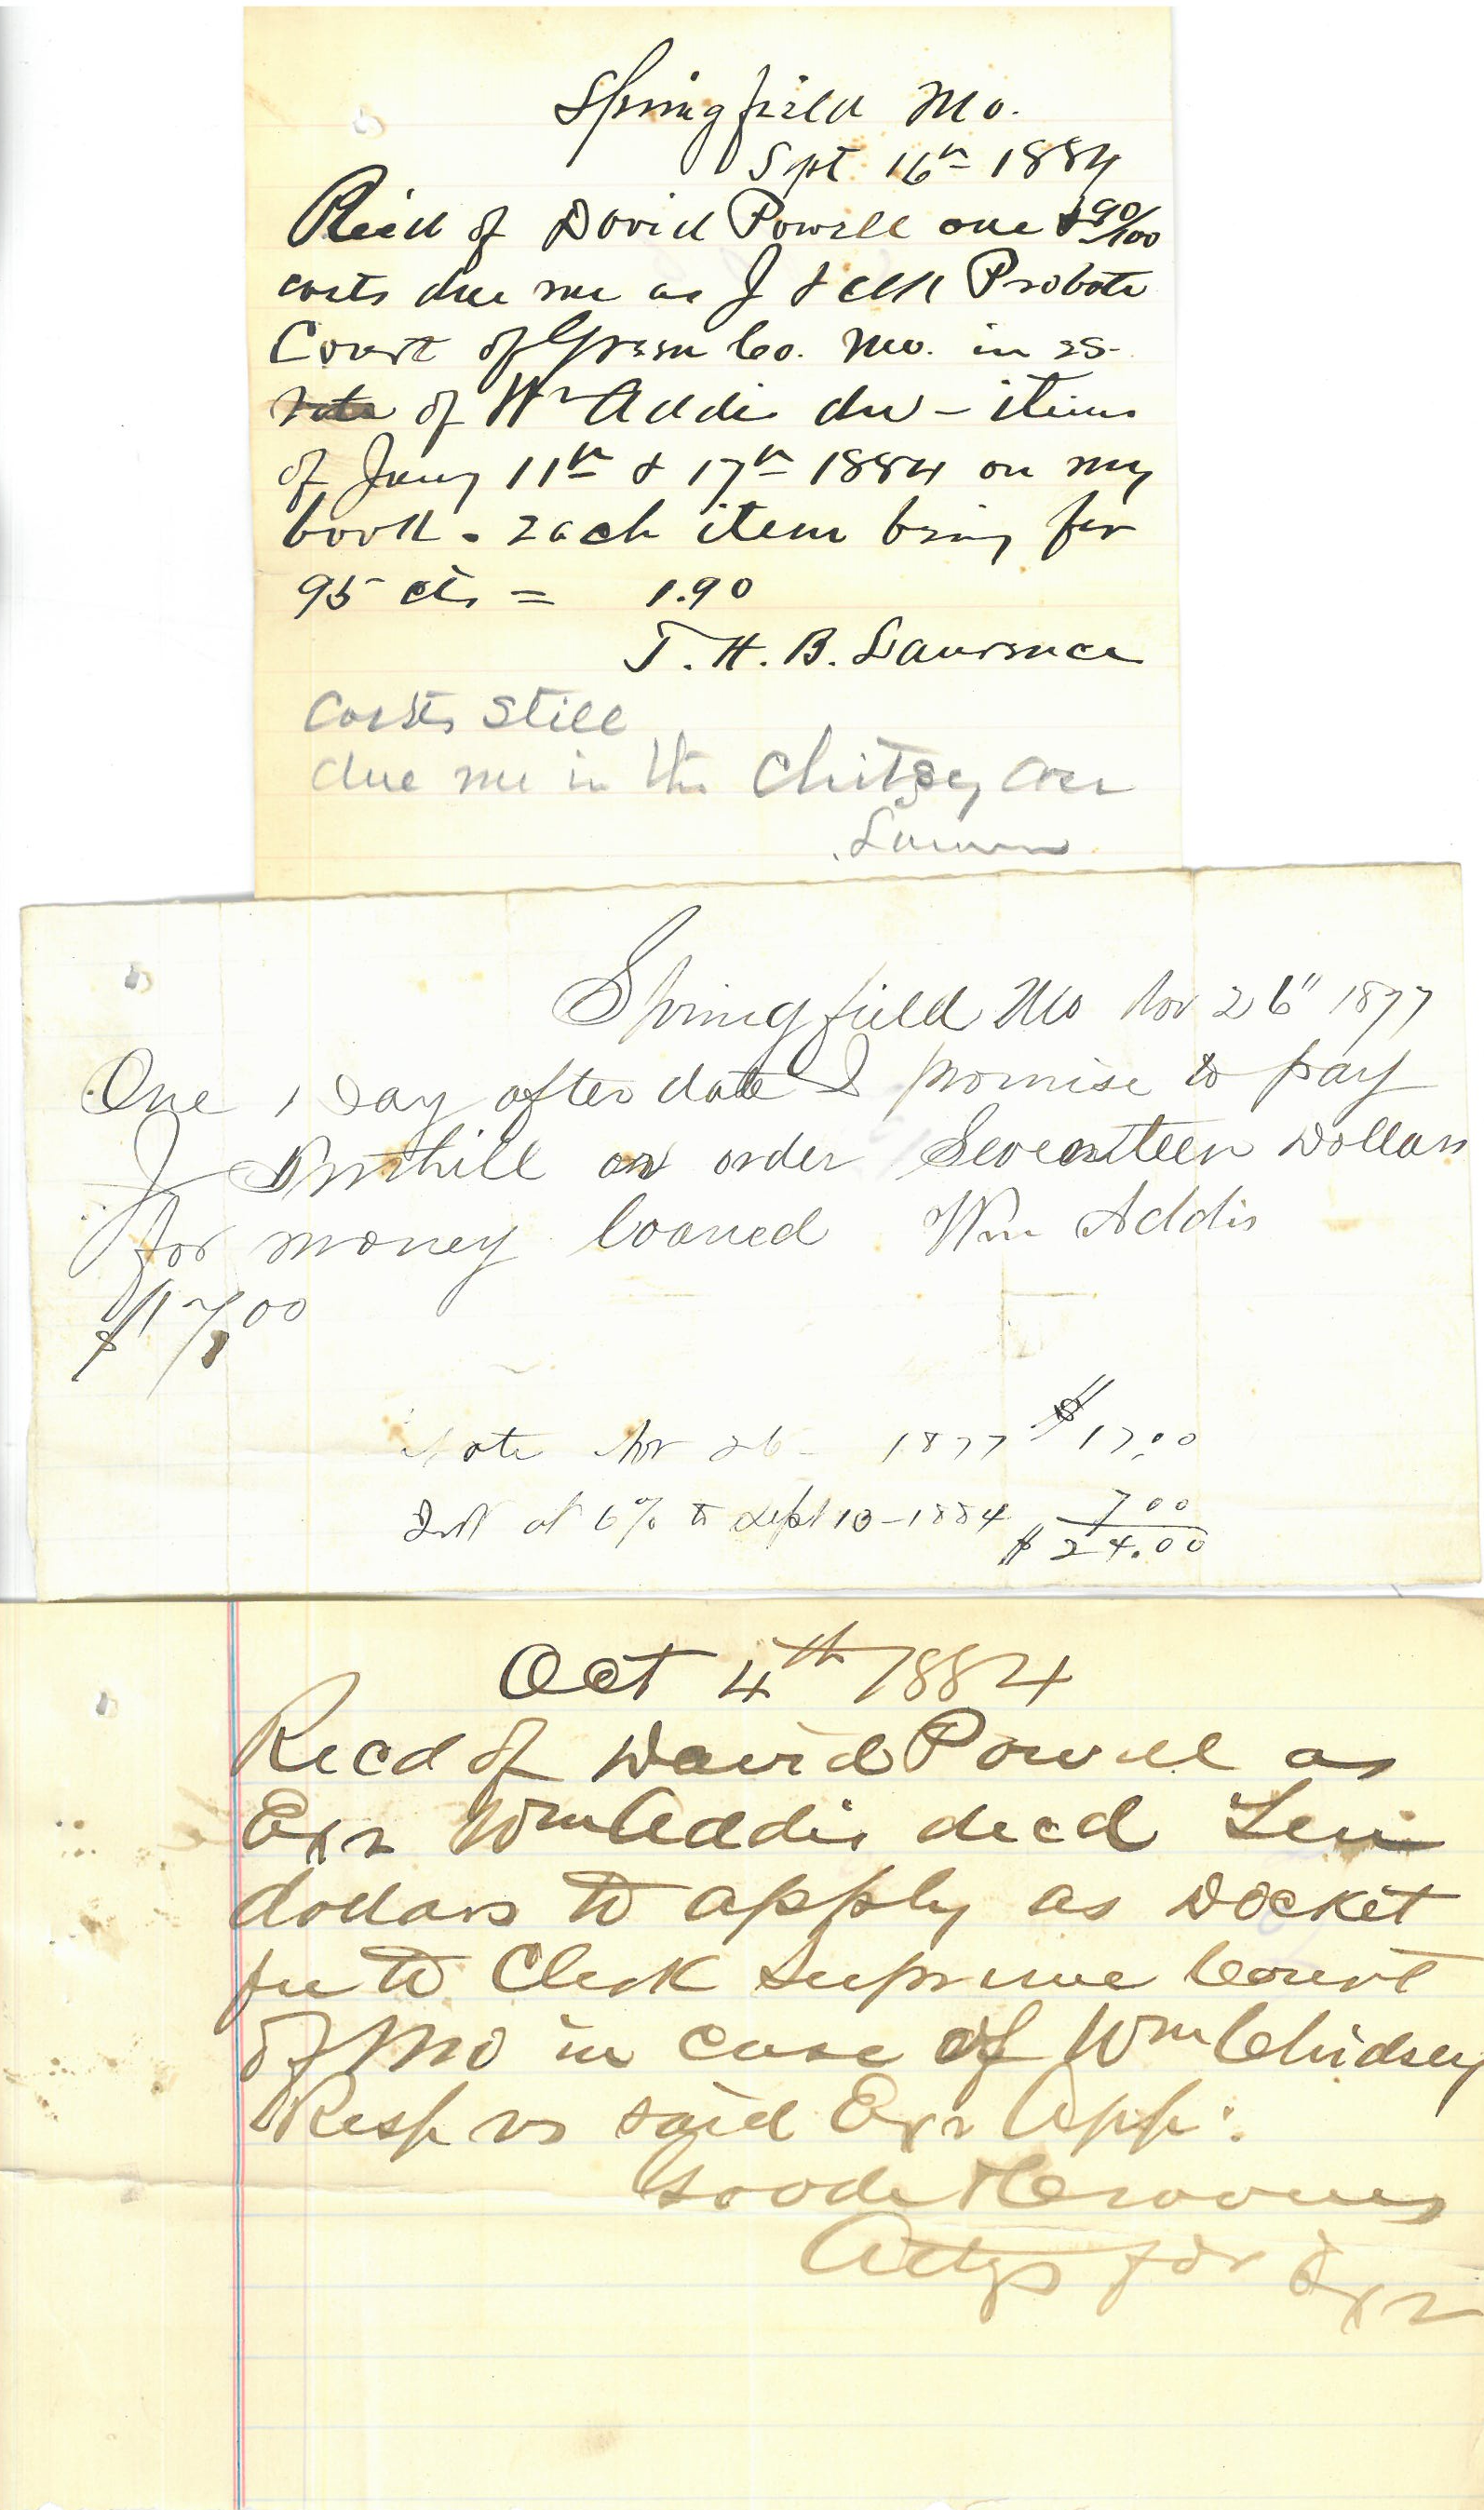 Springfield Mo.
Sept 16th 1884
Recd of David Powell one & 90/100
costs due me as J & Clk Probate
Court of Green Co. Mo. in es-
tate of Wm Addis decd - items
of Jany 11th & 17th 1884 on my
book - each item being for
95 cts = 1.90
T. H. B. Lawrence
Costs still
due me in the Chitsey case
Springfield Mo Nov 26" 1877
One 1 Day after date I promise to pay
J or order Seventeen Dollars
for money loaned Wm Addis
$17.00
Note Nov 26 - 1877 $17.00
Int at 6% to Sept 10 - 1884 7 00
$24.00
Oct 4th 1884
Recd of David Powell as
Exr Wm Addis decd Ten
dollars to apply as Docket
fee to Clerk Supreme Court
of Mo in case of Wm Chidsey
Resp vs said Exr App:
Goode & Cravens
Attys for Exr